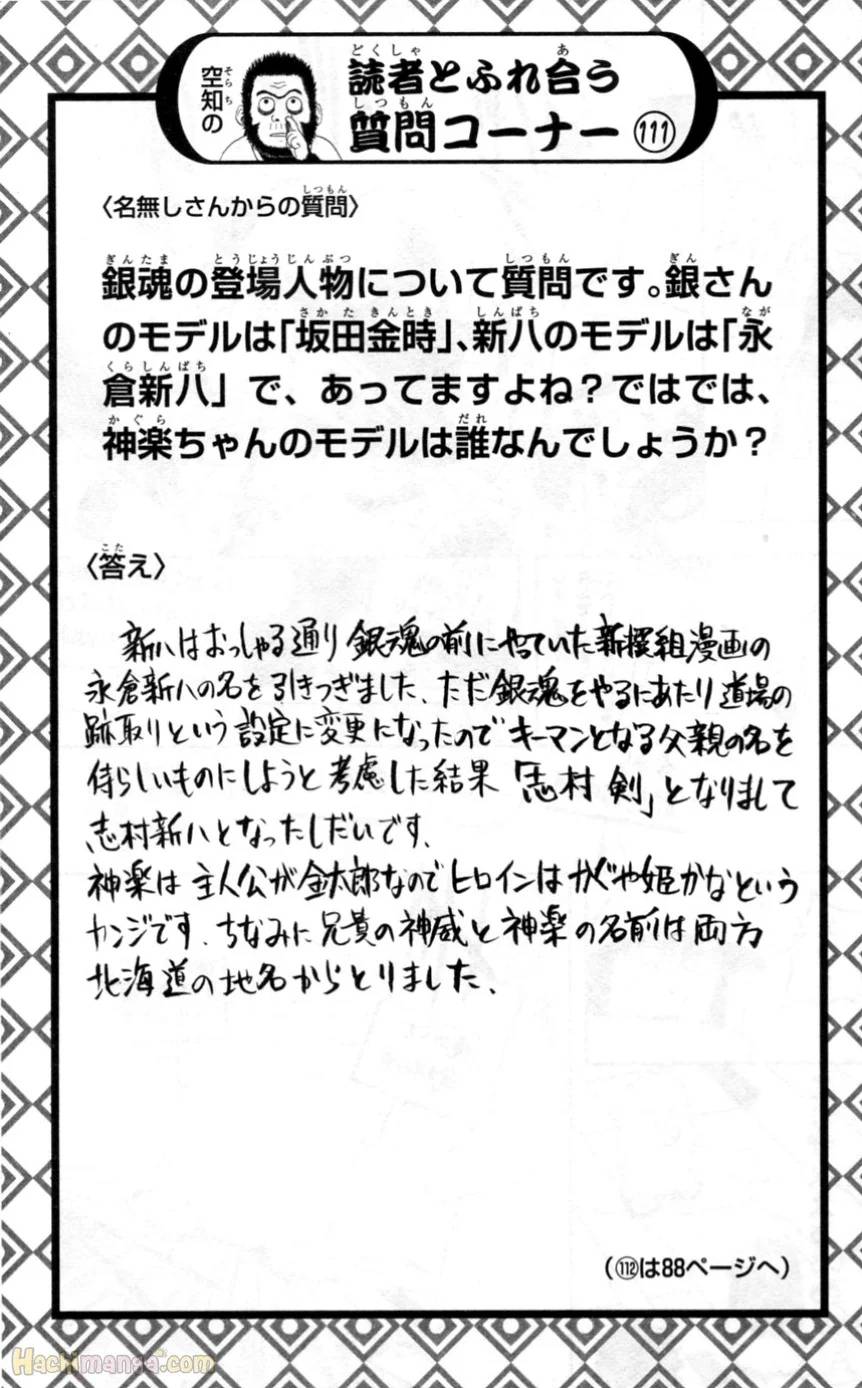 空知の
読者とふれ合う
質問コーナー 111
〈名無しさんからの質問〉
銀魂の登場人物について質問です。銀さん
のモデルは「坂田金時」、新八のモデルは「永
倉新八」で、あってますよね？ではでは、
神楽ちゃんのモデルは誰なんでしょうか？
〈答え〉
新八はおっしゃる通り銀魂の前にやっていた新撰組漫画の
永倉新八の名を引きつぎました、ただ銀魂をやるにあたり道場の
跡取りという設定に変更になったのでキーマンとなる父親の名を
侍らしいものにしようと考慮した結果「志村 剣」となりまして
志村新八となったしだいです、
神楽は主人公が金太郎なのでヒロインはかぐや姫かなという
カンジです、ちなみに兄貴の神威と神楽の名前は両方
北海道の地名からとりました、
（⑪⑫は88ページへ）
Hachimanga.com